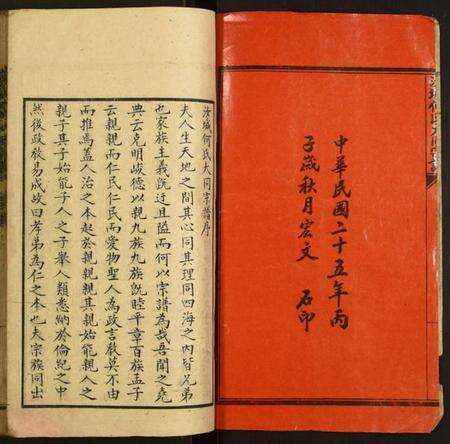 中華民國二十五年丙
子歲秋月宏文 石印
汝城何氏大同宗譜序
夫人生天地之間其心同其理同四海之內皆兄弟
也家族主義既迂且隘而何以宗譜為哉吾聞之堯
典云克明峻德以親九族九族既睦平章百族孟子
云親親而仁民仁民而愛物聖人為政言教莫不由
而推焉蓋人治之本起於親親親其親始能親人之
親子其子始能子人之子舉人類悉納於倫紀之中
然後政教易成故曰孝弟為仁之本也夫宗族同出